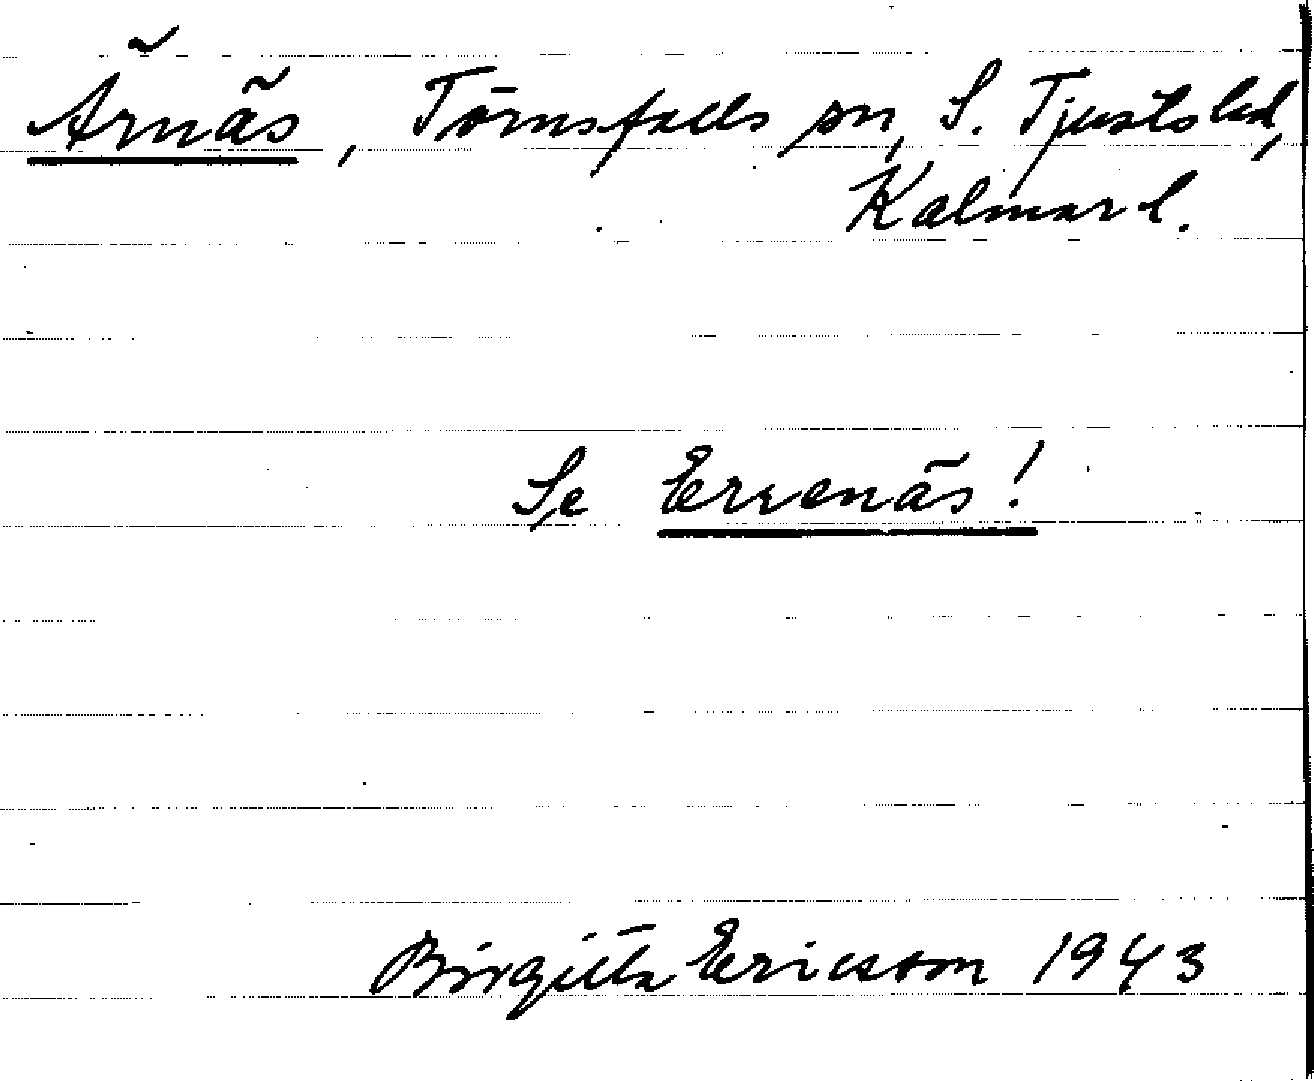 Ärnäs, Törnsfalls sn, S. Tjusts hd,
Kalmar l.
Se Ervenäs!
Birgitta Ericson 1943